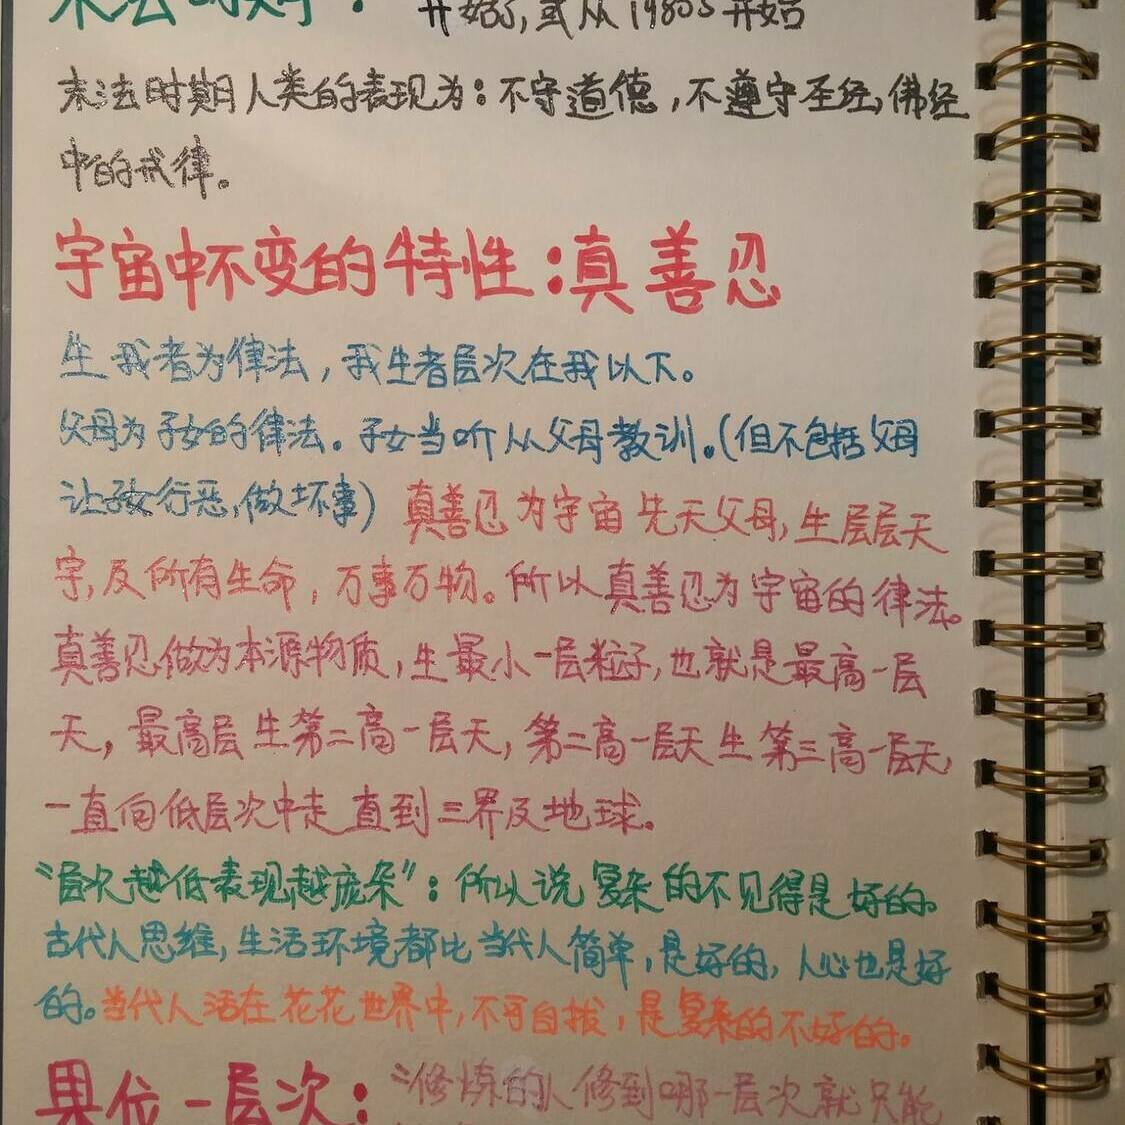 末法时期：
开始了，或从1980s开始
末法时期人类的表现为：不守道德，不遵守圣经，佛经
中的戒律。
宇宙中不变的特性：真善忍
生我者为律法，我生者层次在我以下。
父母为子女的律法。子女当听从父母教训。（但不包括父母
让子女行恶，做坏事） 真善忍为宇宙先天父母，生层层天
宇，及所有生命，万事万物。所以真善忍为宇宙的律法。
真善忍做为本源物质，生最小一层粒子，也就是最高一层
天，最高层生第二高一层天，第二高一层天生第三高一层天，
一直向低层次中走直到三界及地球。
“层次越低表现越庞杂”：所以说复杂的不见得是好的。
古代人思维，生活环境都比当代人简单，是好的，人心也是好
的。当代人活在花花世界中，不可自拔，是复杂的不好的。
果位一层次：
修炼的人修到哪一层次就只能